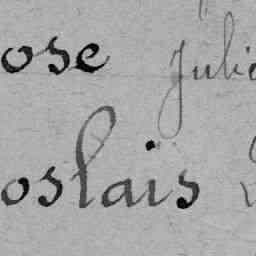 ose Julie
oslais